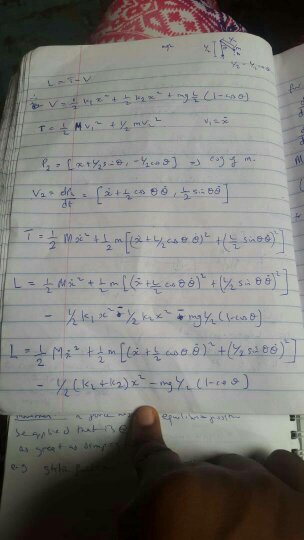 L = T - V
V = 1/2 k₁x² + 1/2 k₂x² + mg L/2 (1-cosθ)
T = 1/2 M v₁² + 1/2 m v₂²   v₁ = ẋ
P₂ = [x + L/2 sinθ, -L/2 cosθ] ⇒ cog of m.
V₂ = dP₂/dt = [ẋ + L/2 cosθ θ̇, L/2 sinθ θ̇]
T = 1/2 Mẋ² + 1/2 m [(ẋ + L/2 cosθ θ̇)² + (L/2 sinθ θ̇)²]
L = 1/2 Mẋ² + 1/2 m [(ẋ + L/2 cosθ θ̇)² + (L/2 sinθ θ̇)²]
- 1/2 k₁x² - 1/2 k₂x² - mg L/2 (1-cosθ)
L = 1/2 Mẋ² + 1/2 m [(ẋ + L/2 cosθ θ̇)² + (L/2 sinθ θ̇)²]
- 1/2 (k₁+k₂)x² - mg L/2 (1-cosθ)
a force
equilibrium position
be applied that is
as great as